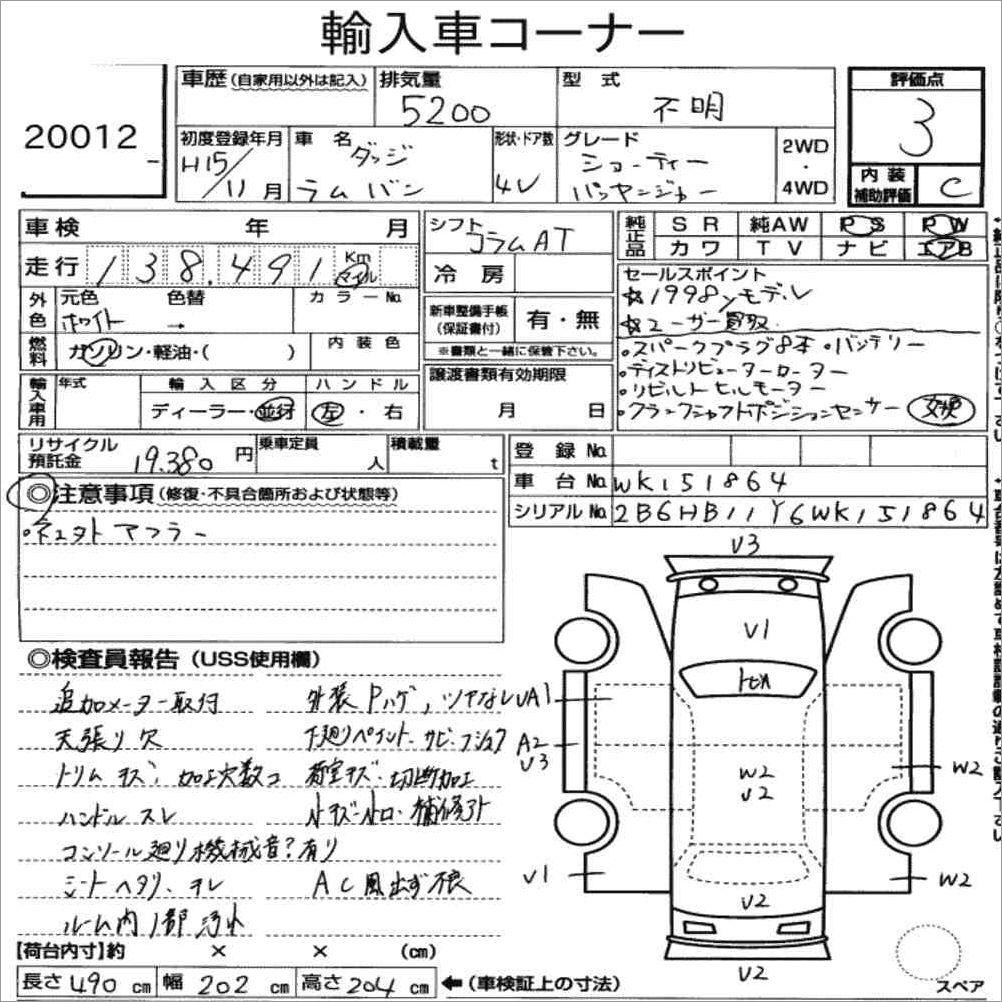 輸入車コーナー
20012
車歴(自家用以外は記入)
排気量
5200
型式
不明
評価点
3
初度登録年月
H15/11月
車名
ダッジ
ラムバン
形状・ドア数
4V
グレード
ショーティー
パッセンジャー
2WD
・
4WD
内装
補助評価
C
車検 年 月
走行 138,491 Km マイル
シフト
コラムAT
冷房
純正品
SR 純AW PS PW
カワ TV ナビ エアB
外色
元色 色替 カラーNo.
ホワイト →
燃料
ガソリン・軽油・( )
内装色
新車整備手帳
(保証書付)
有・無
※書類と一緒に保管下さい。
セールスポイント
☆1998yモデル
☆ユーザー買取
・スパークプラグ8本・バッテリー
・ディストリビューターローター
・リビルトセルモーター
・クランクシャフトポジションセンサー 交換
輸入車用
年式
輸入区分
ハンドル
ディーラー・並行
左・右
譲渡書類有効期限
月 日
リサイクル
預託金
19,380円
乗車定員
人
積載量
t
登録No.
車台No. WK151864
シリアルNo. 2B6HB11Y6WK151864
◎注意事項(修復・不具合箇所および状態等)
マフラー
◎検査員報告(USS使用欄)
追加メーター取付
外装Pハゲ,ツヤなし
天張り欠
下廻りペイント・サビ・フショク
トリムキズ,加工穴数コ
荷室キズ・切断加工
ハンドルスレ
小キズ・小凹・補修跡
コンソール廻り機械音?有り
シートヘタリ、キレ
AC風出ず不良
ルーム内1部汚れ
V3
V1
UA1
A2
V3
W2
V2
W2
V1
W2
V2
V2
スペア
【荷台内寸】約 × × (cm)
長さ490cm 幅202cm 高さ204cm ←(車検証上の寸法)